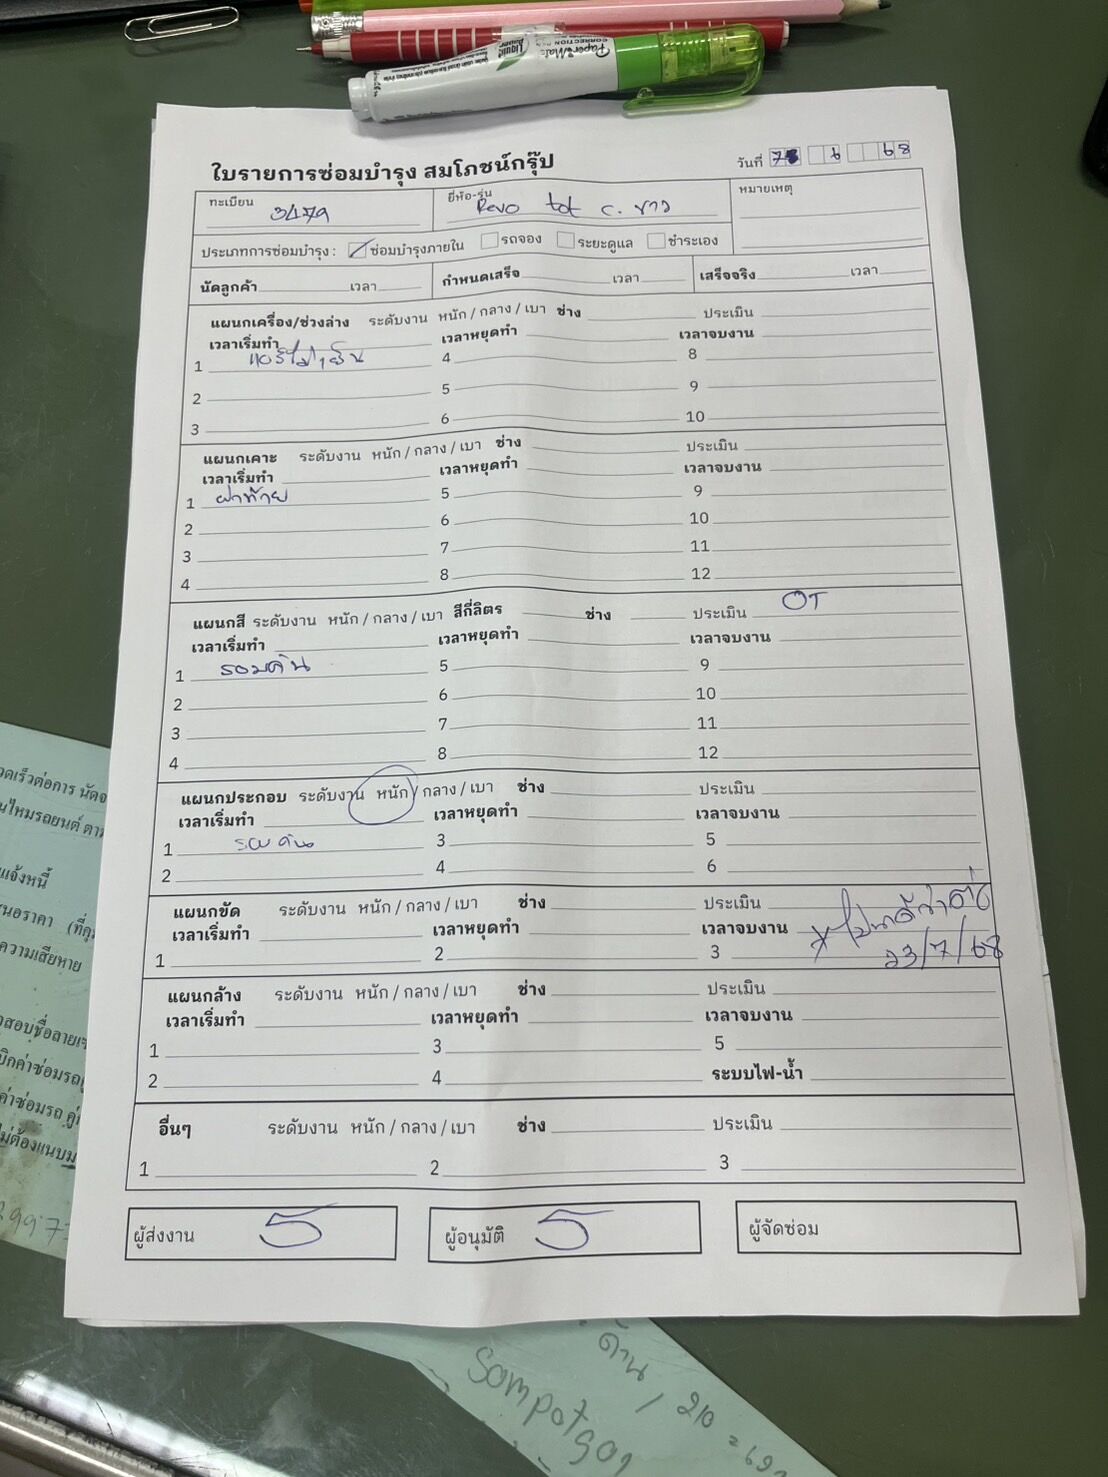 Paper Mate
CORRECTION PEN
Liquid Paper
ใบรายการซ่อมบำรุง สมโภชน์กรุ๊ป
วันที่ 6 68
ทะเบียน 3479
ยี่ห้อ-รุ่น Revo tot c. ขาว
หมายเหตุ
ประเภทการซ่อมบำรุง : ซ่อมบำรุงภายใน รถจอง ระยะดูแล ชำระเอง
นัดลูกค้า เวลา กำหนดเสร็จ เวลา เสร็จจริง เวลา
แผนกเครื่อง/ช่วงล่าง ระดับงาน หนัก / กลาง / เบา ช่าง ประเมิน
เวลาเริ่มทำ เวลาหยุดทำ เวลาจบงาน
1 แอร์ไม่เย็น 4 8
2 5 9
3 6 10
แผนกเคาะ ระดับงาน หนัก / กลาง / เบา ช่าง ประเมิน
เวลาเริ่มทำ เวลาหยุดทำ เวลาจบงาน
1 ฝาท้าย 5 9
2 6 10
3 7 11
4 8 12
แผนกสี ระดับงาน หนัก / กลาง / เบา สีกี่ลิตร ช่าง ประเมิน OT
เวลาเริ่มทำ เวลาหยุดทำ เวลาจบงาน
1 รอบคัน 5 9
2 6 10
3 7 11
4 8 12
แผนกประกอบ ระดับงาน หนัก / กลาง / เบา ช่าง ประเมิน
เวลาเริ่มทำ เวลาหยุดทำ เวลาจบงาน
1 รอบคัน 3 5
2 4 6
แผนกขัด ระดับงาน หนัก / กลาง / เบา ช่าง ประเมิน
เวลาเริ่มทำ เวลาหยุดทำ เวลาจบงาน
1 2 3
23/7/68
แผนกล้าง ระดับงาน หนัก / กลาง / เบา ช่าง ประเมิน
เวลาเริ่มทำ เวลาหยุดทำ เวลาจบงาน
1 3 5
2 4 ระบบไฟ-น้ำ
อื่นๆ ระดับงาน หนัก / กลาง / เบา ช่าง ประเมิน
1 2 3
ผู้ส่งงาน 5 ผู้อนุมัติ 5 ผู้จัดซ่อม
วดเร็วต่อการ นัด
นไหมรถยนต์ ตาม
แจ้งหนี้
นอราคา (ที่
ความเสียหาย
สอบชื่อลายเซ
บิกค่าซ่อมรถ
ค่าซ่อมรถ คู่
ไม่ต้องแนบ
2997
ด้าน / 210
Sompotgo